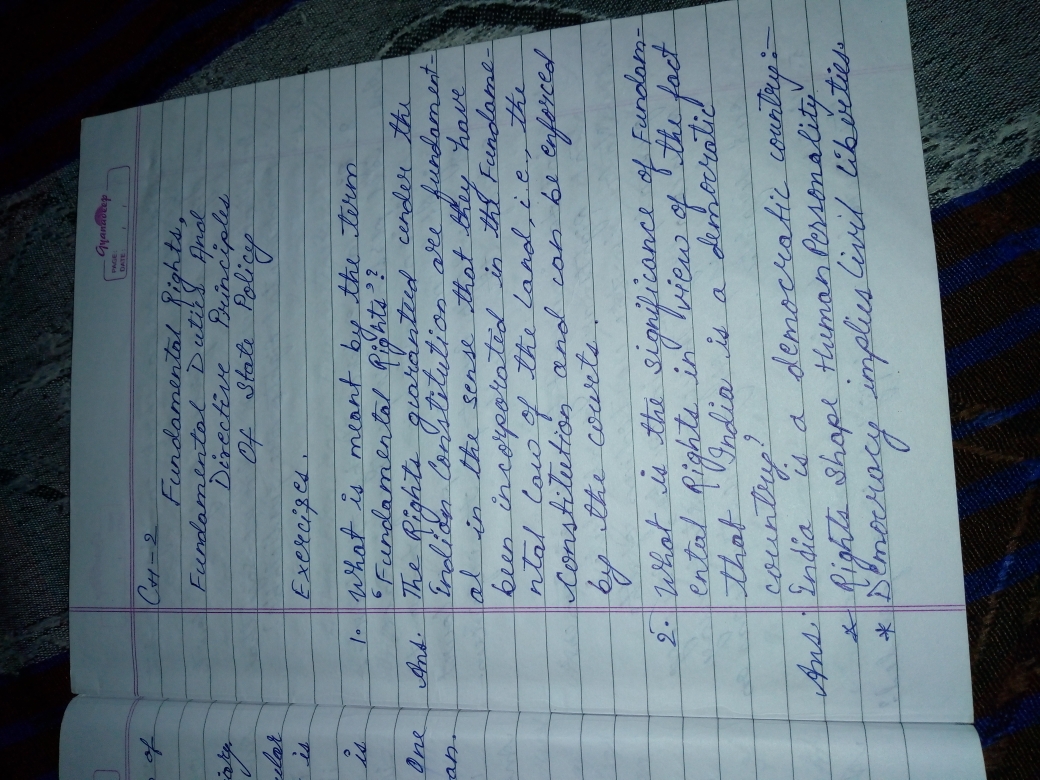 Gyandeep
PAGE:
DATE:
CH-2
Fundamental Rights,
Fundamental Duties And
Directive Principles
Of State Policy
Exercises.
1. What is meant by the term
'Fundamental Rights'?
Ans. The Rights guaranteed under the
Indian Constitution are fundament-
al in the sense that they have
been incorporated in the Fundame-
ntal Law of the Land, i.e., the
Constitution and can be enforced
by the courts.
2. What is the significance of Fundam-
ental Rights in view of the fact
that India is a democratic
country?
Ans. India is a democratic country:-
* Rights shape Human Personality
* Democracy implies Civil Liberties.
of
ular
is
is
One
an.